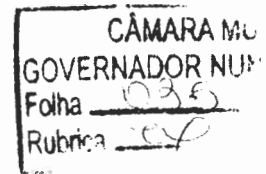 CÂMARA MU
GOVERNADOR NU
Folha 035
Rubrica